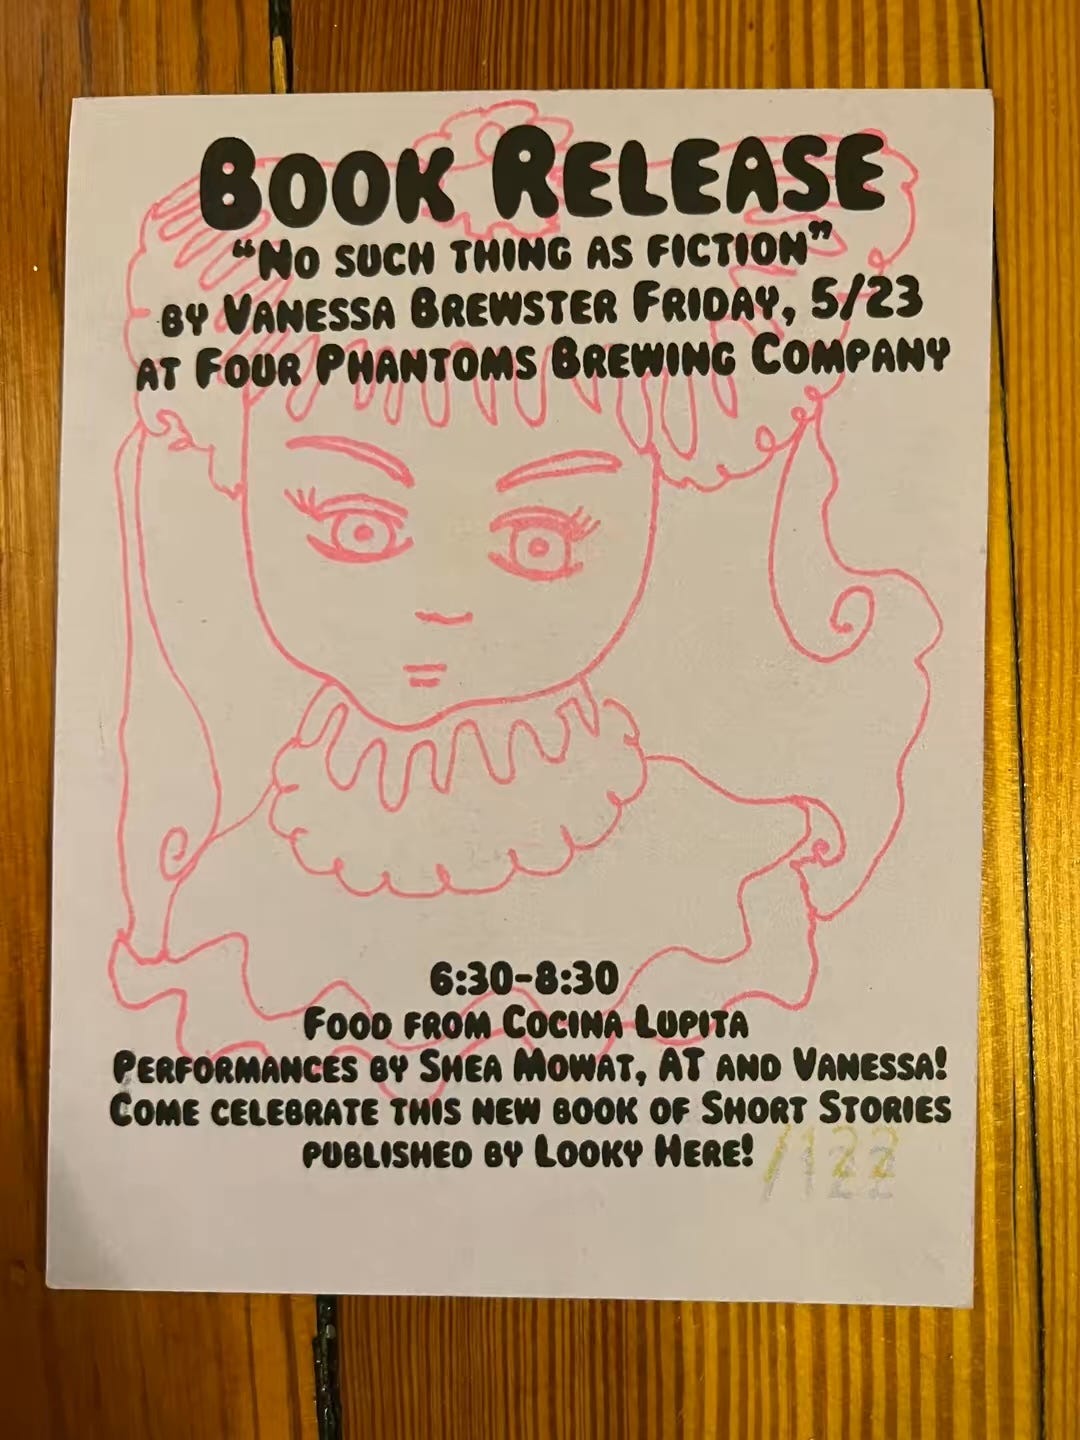 Book Release
“No such thing as fiction”
by Vanessa Brewster Friday, 5/23
at Four Phantoms Brewing Company
6:30-8:30
Food from Cocina Lupita
Performances by Shea Mowat, AT and Vanessa!
Come celebrate this new book of Short Stories
published by Looky Here!
/122